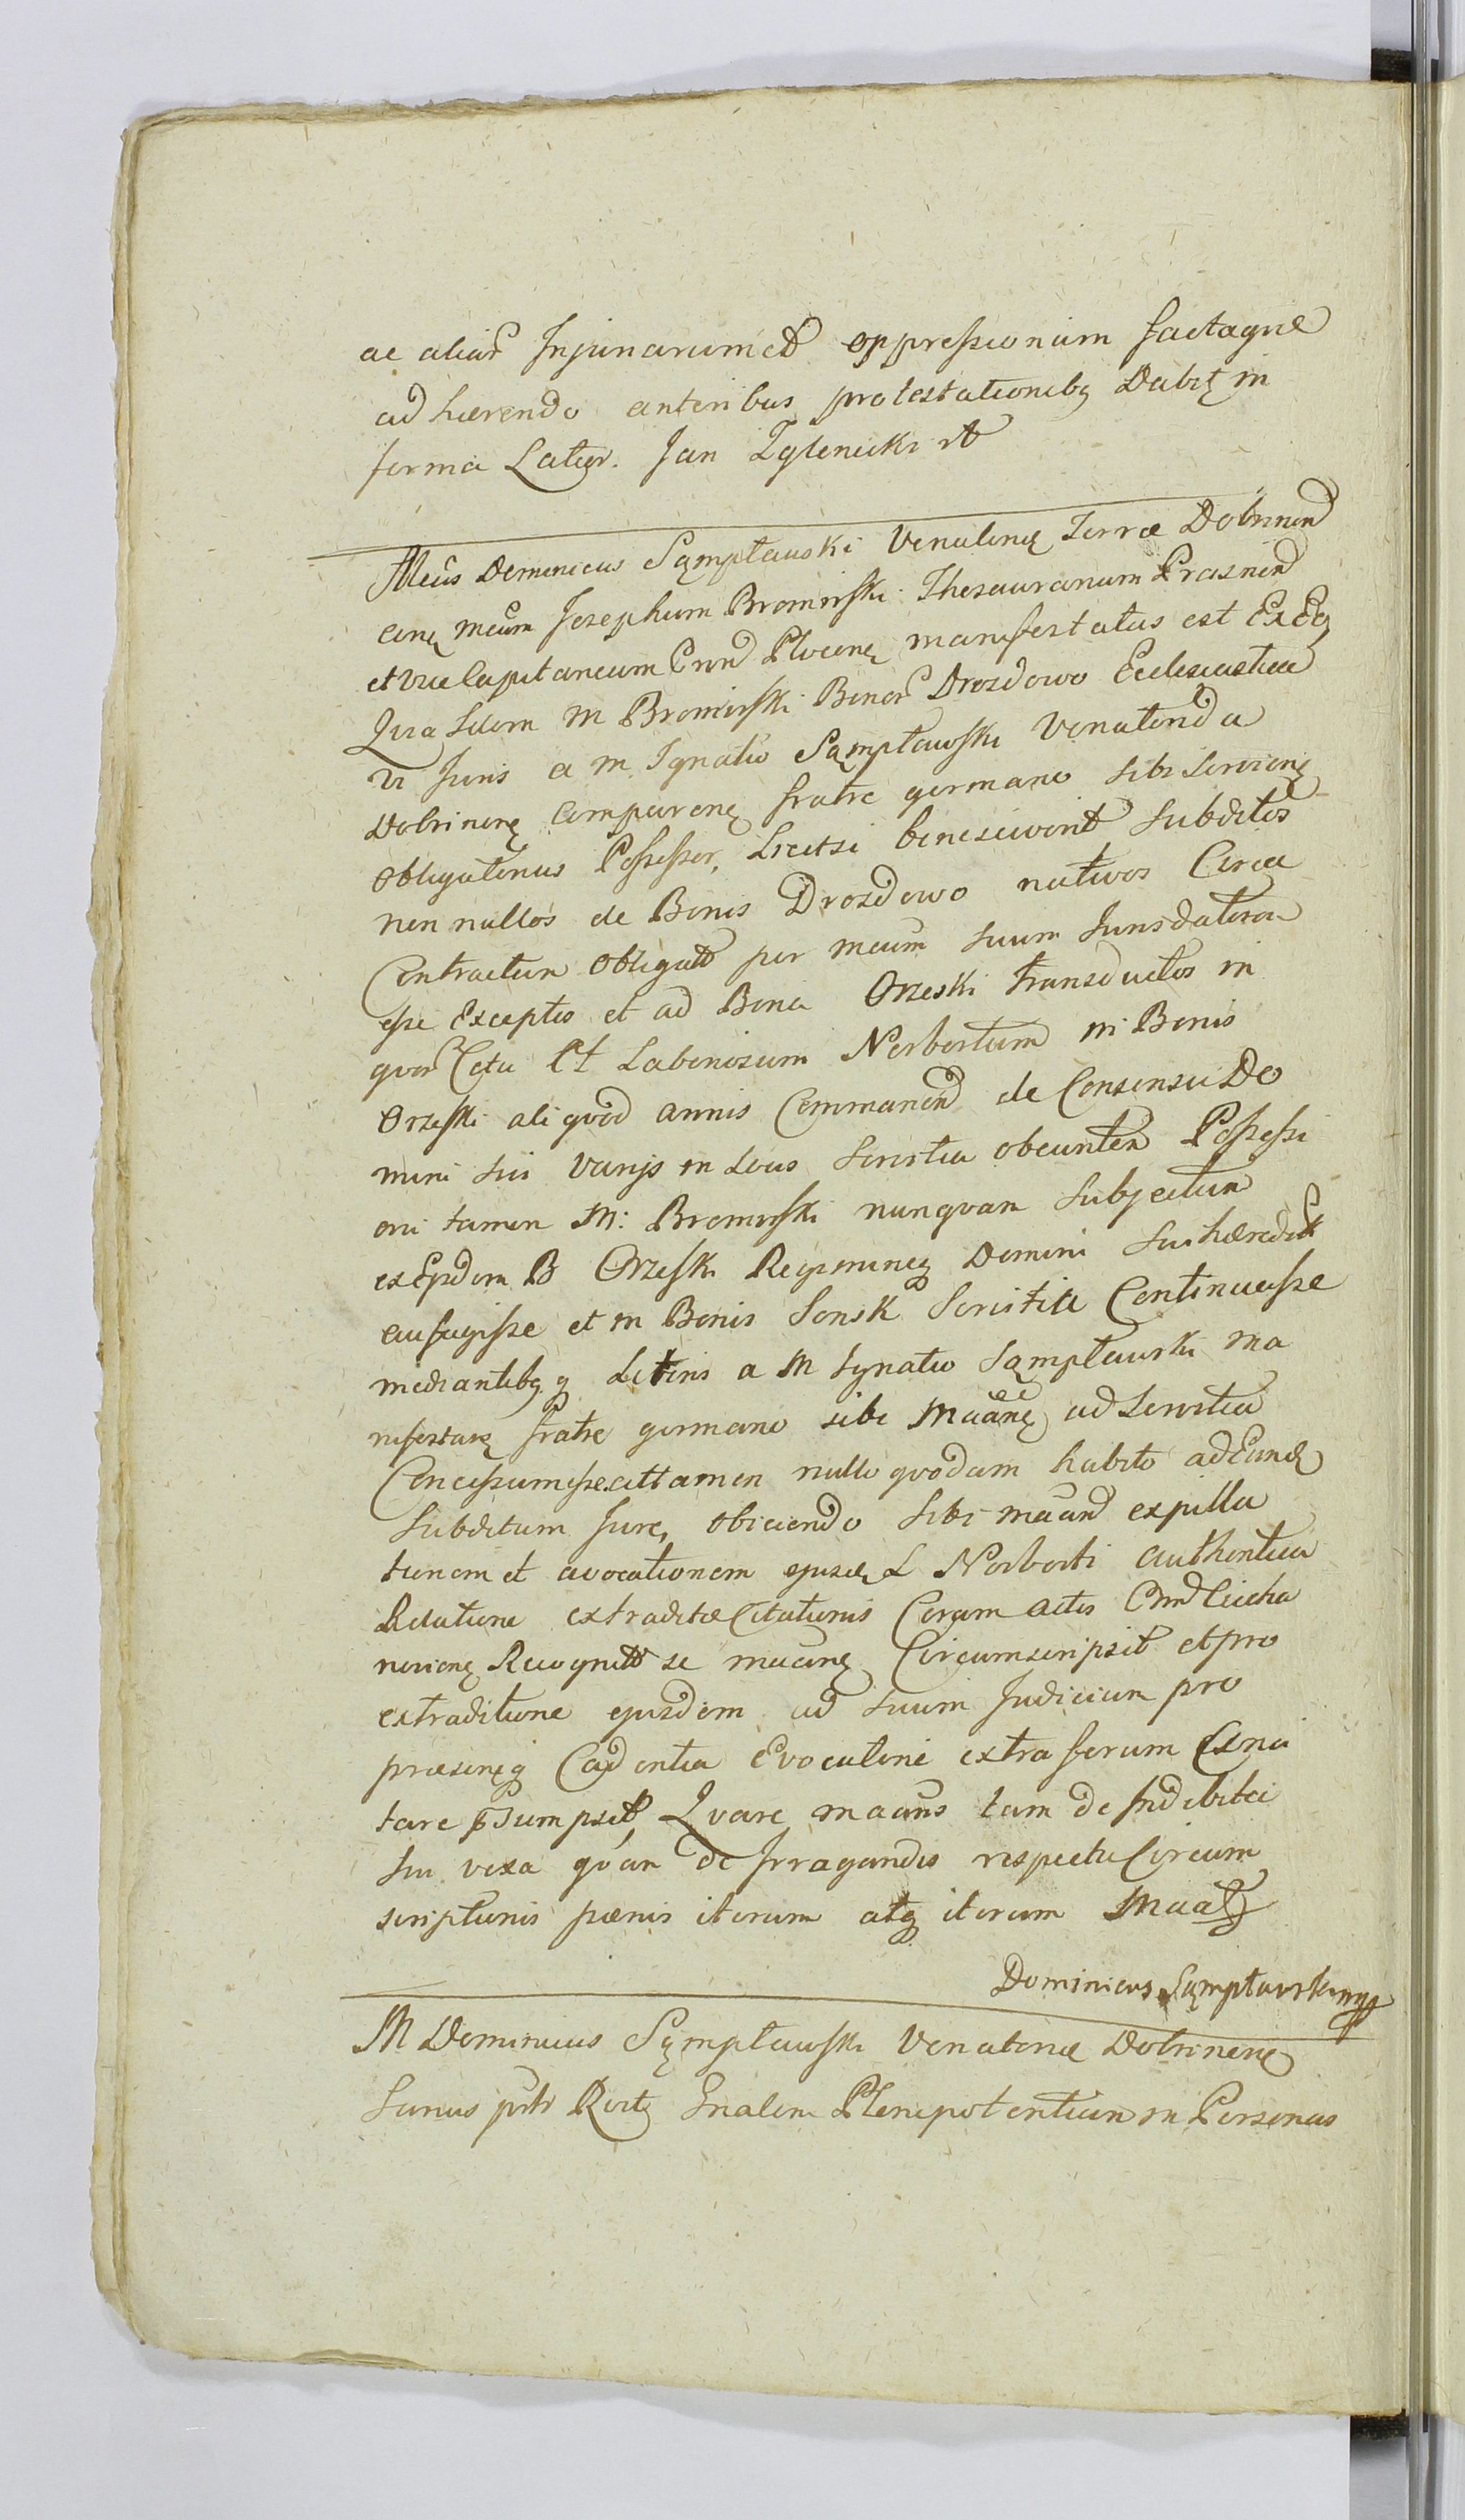 ac aliar Injuriarum et oppressionum factaque
adhærendo anteribus protestationibq Dabit in
forma Latior. Jan Zglenicki rt
Mcus Dominicus Sąmpławski Venatoriq Terræ Dobrinen
cōnq Mcum Josephum Bromirski Thesaurarium Prasnen
et Vice Capitaneum Crnd Plocenq manifestatus est Ex Eq
Quia Idem M Bromirski Bonor Drozdowo Ecclesiastica
vi Juris a M Ignatio Sąmpławski Venatorida
Dobrinenq comparenq fratre germano sibi servienq
obligatorius Possessor, Licet si bene sciverit subditos
non nullos de Bonis Drozdowo nativos Circa
Contractum obligatt per Mcum suum Jurisdatorem
esse Exceptos et ad Bona Orzeski transductos in
quor Cetu et Laboriosum Norbertum in Bonis
Orzeski aliquod annis Commanen de Consensu Do
mini sui varijs in Locis servitia obeuntem Possessi
oni tamen M: Bromirski nunquam subjectum
ex Ejsdem B Orzeski Regimineq Domini sui hæredit
aufugisse et in Bonis Sonsk servitia Continuasse
mediantibq q Literis a M Ignatio Sąmpławski ma
nifestanq fratre germano sibi Maanq ad servitia
Concessum esse attamen nullo quodam habito ad Eundq
subditum Jure, obiciendo sibi maand expilla
tionem et avocationem ejusdq L Norberti authentica
Relatione extraditæ Citationis Coram actis Crnd Ciecha
novienq Recognitt se mācanq Circumscripsit et pro
extraditione ejusdem ad suum Judicium pro
præsenq Cadentia Evocatorie extra forum Exna
tare psumpsit, Quare maans tam de Indebitei
sui vexa qvam de Irrogandis respectu Circum
scriptionis pœnis iterum atq iterum Maatq
Dominicus Sąmpławski mp
M Dominicus Sąmpławski Venatoriæ Dobrinenq
Sanus pntr Rectq Gnalem Plenipotentiam in Personas